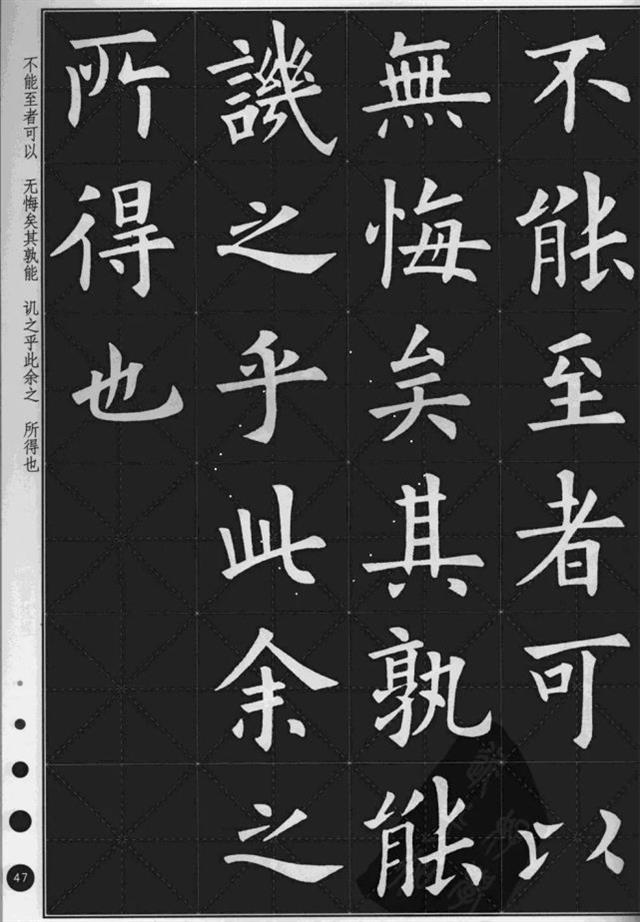 不能至者可以
無悔矣其孰能
譏之乎此余之
所得也
不能至者可以 无悔矣其孰能 讥之乎此余之 所得也
47